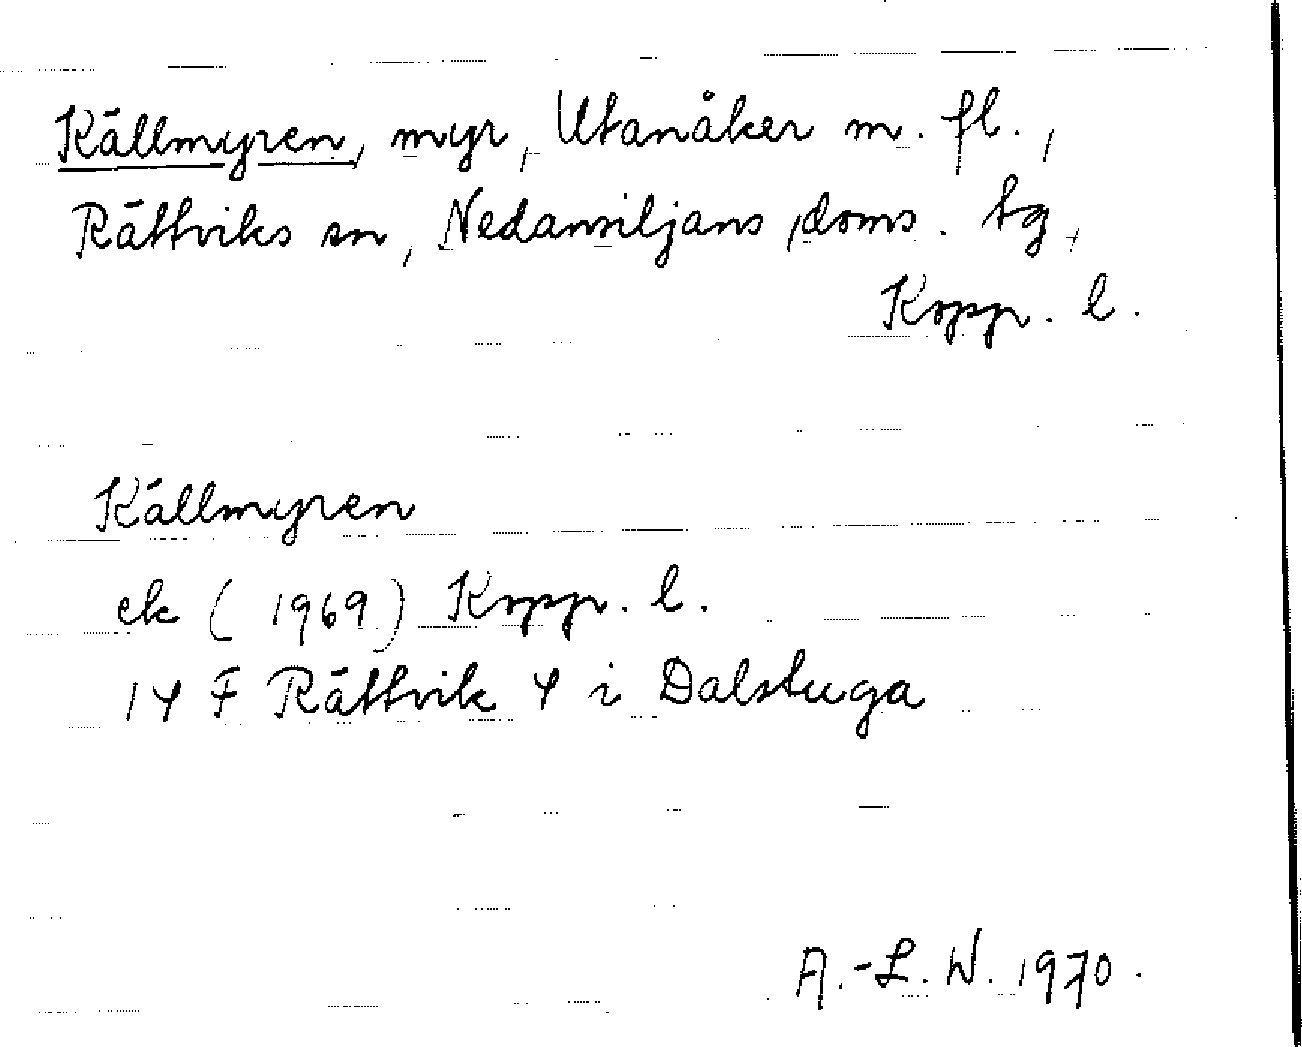 Källmyren, myr, Utanåker m. fl.,
Rättviks sn, Nedansiljans doms. tg,
Kopp. l.
Källmyren
ek (1969) Kopp. l.
14 F Rättvik 4 i Dalstuga
A.-L. W. 1970.